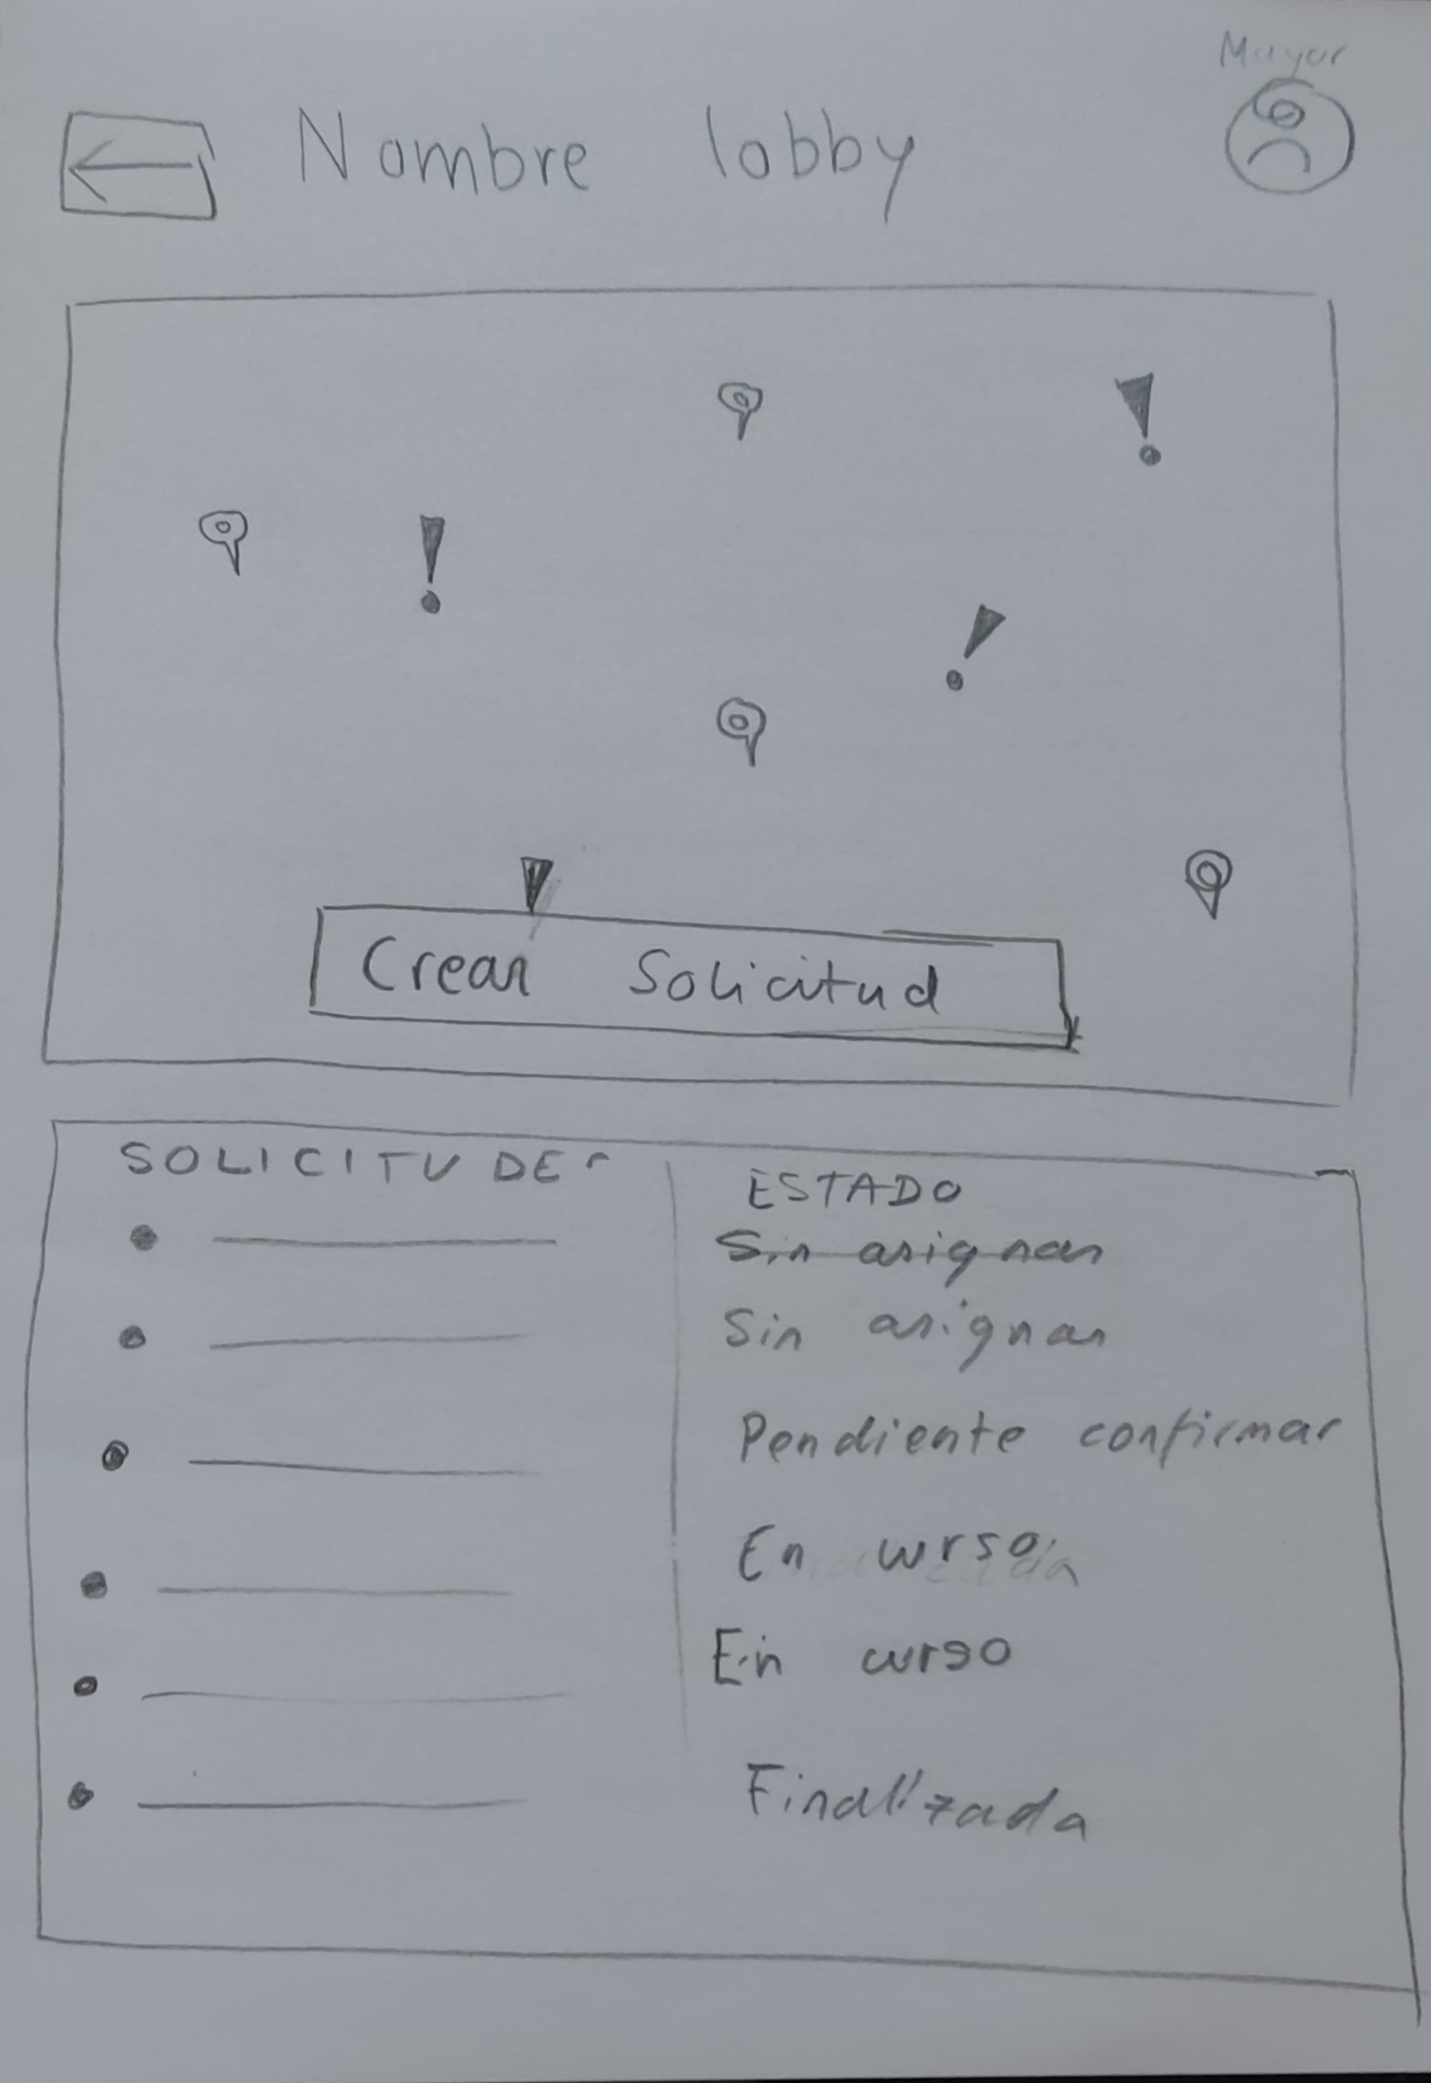 Mayor
Nombre lobby
Crear Solicitud
SOLICITUDES
ESTADO
Sin asignar
Sin asignar
Pendiente confirmar
En curso
En curso
Finalizada